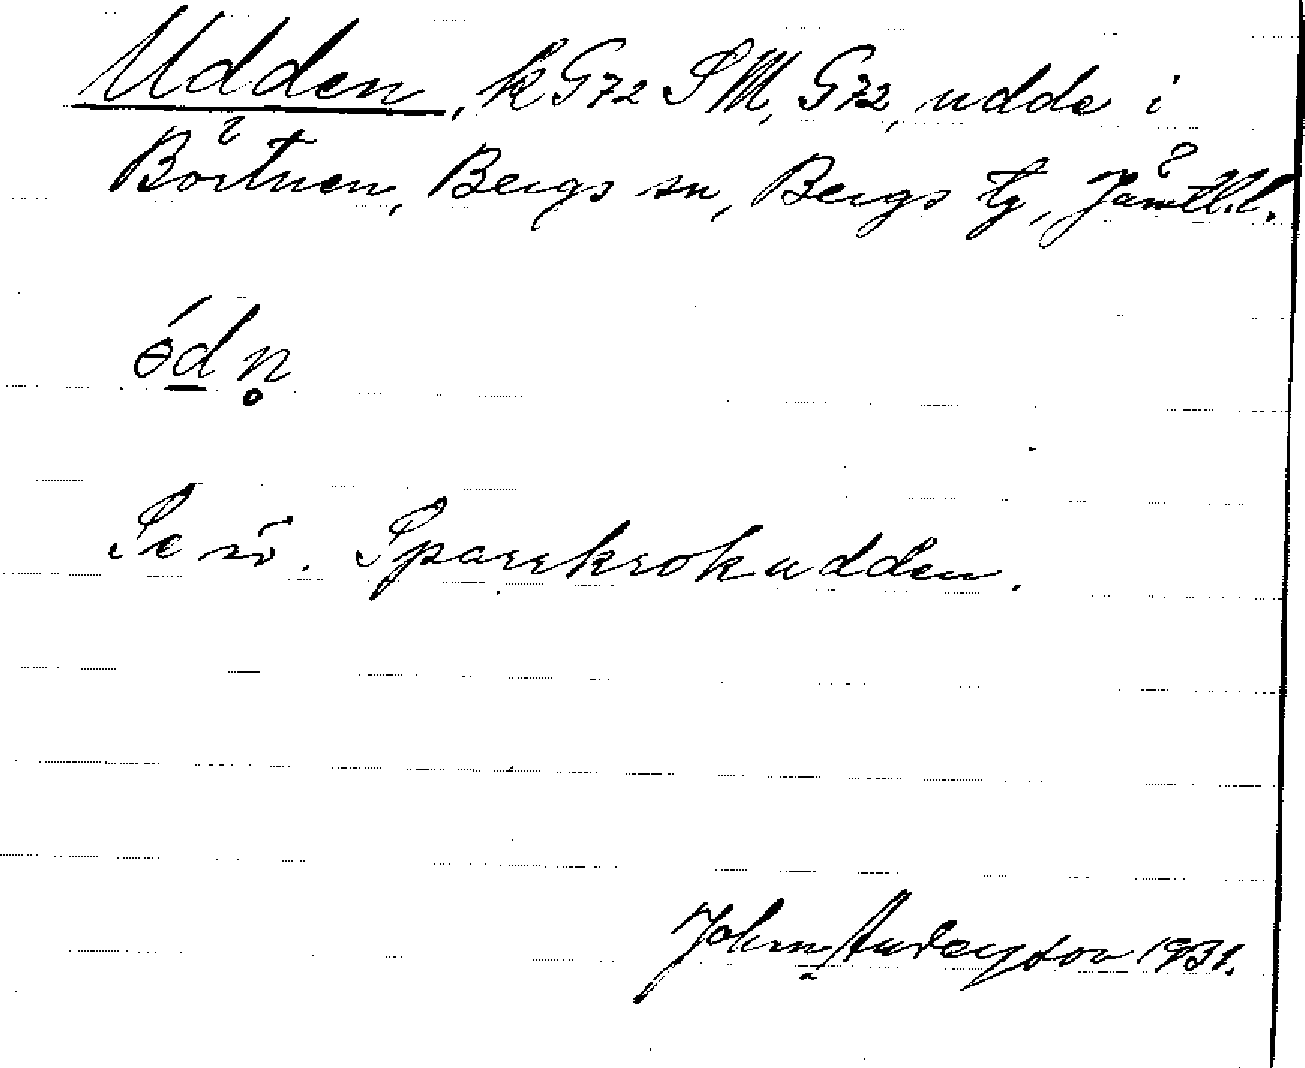 Udden, k G72 SM, G72, udde i
Börtnen, Bergs sn, Bergs tg, Jämtl.l.
ɵ́dn̥
Se nö. Sparrkrokudden.
John Andersson 1931.